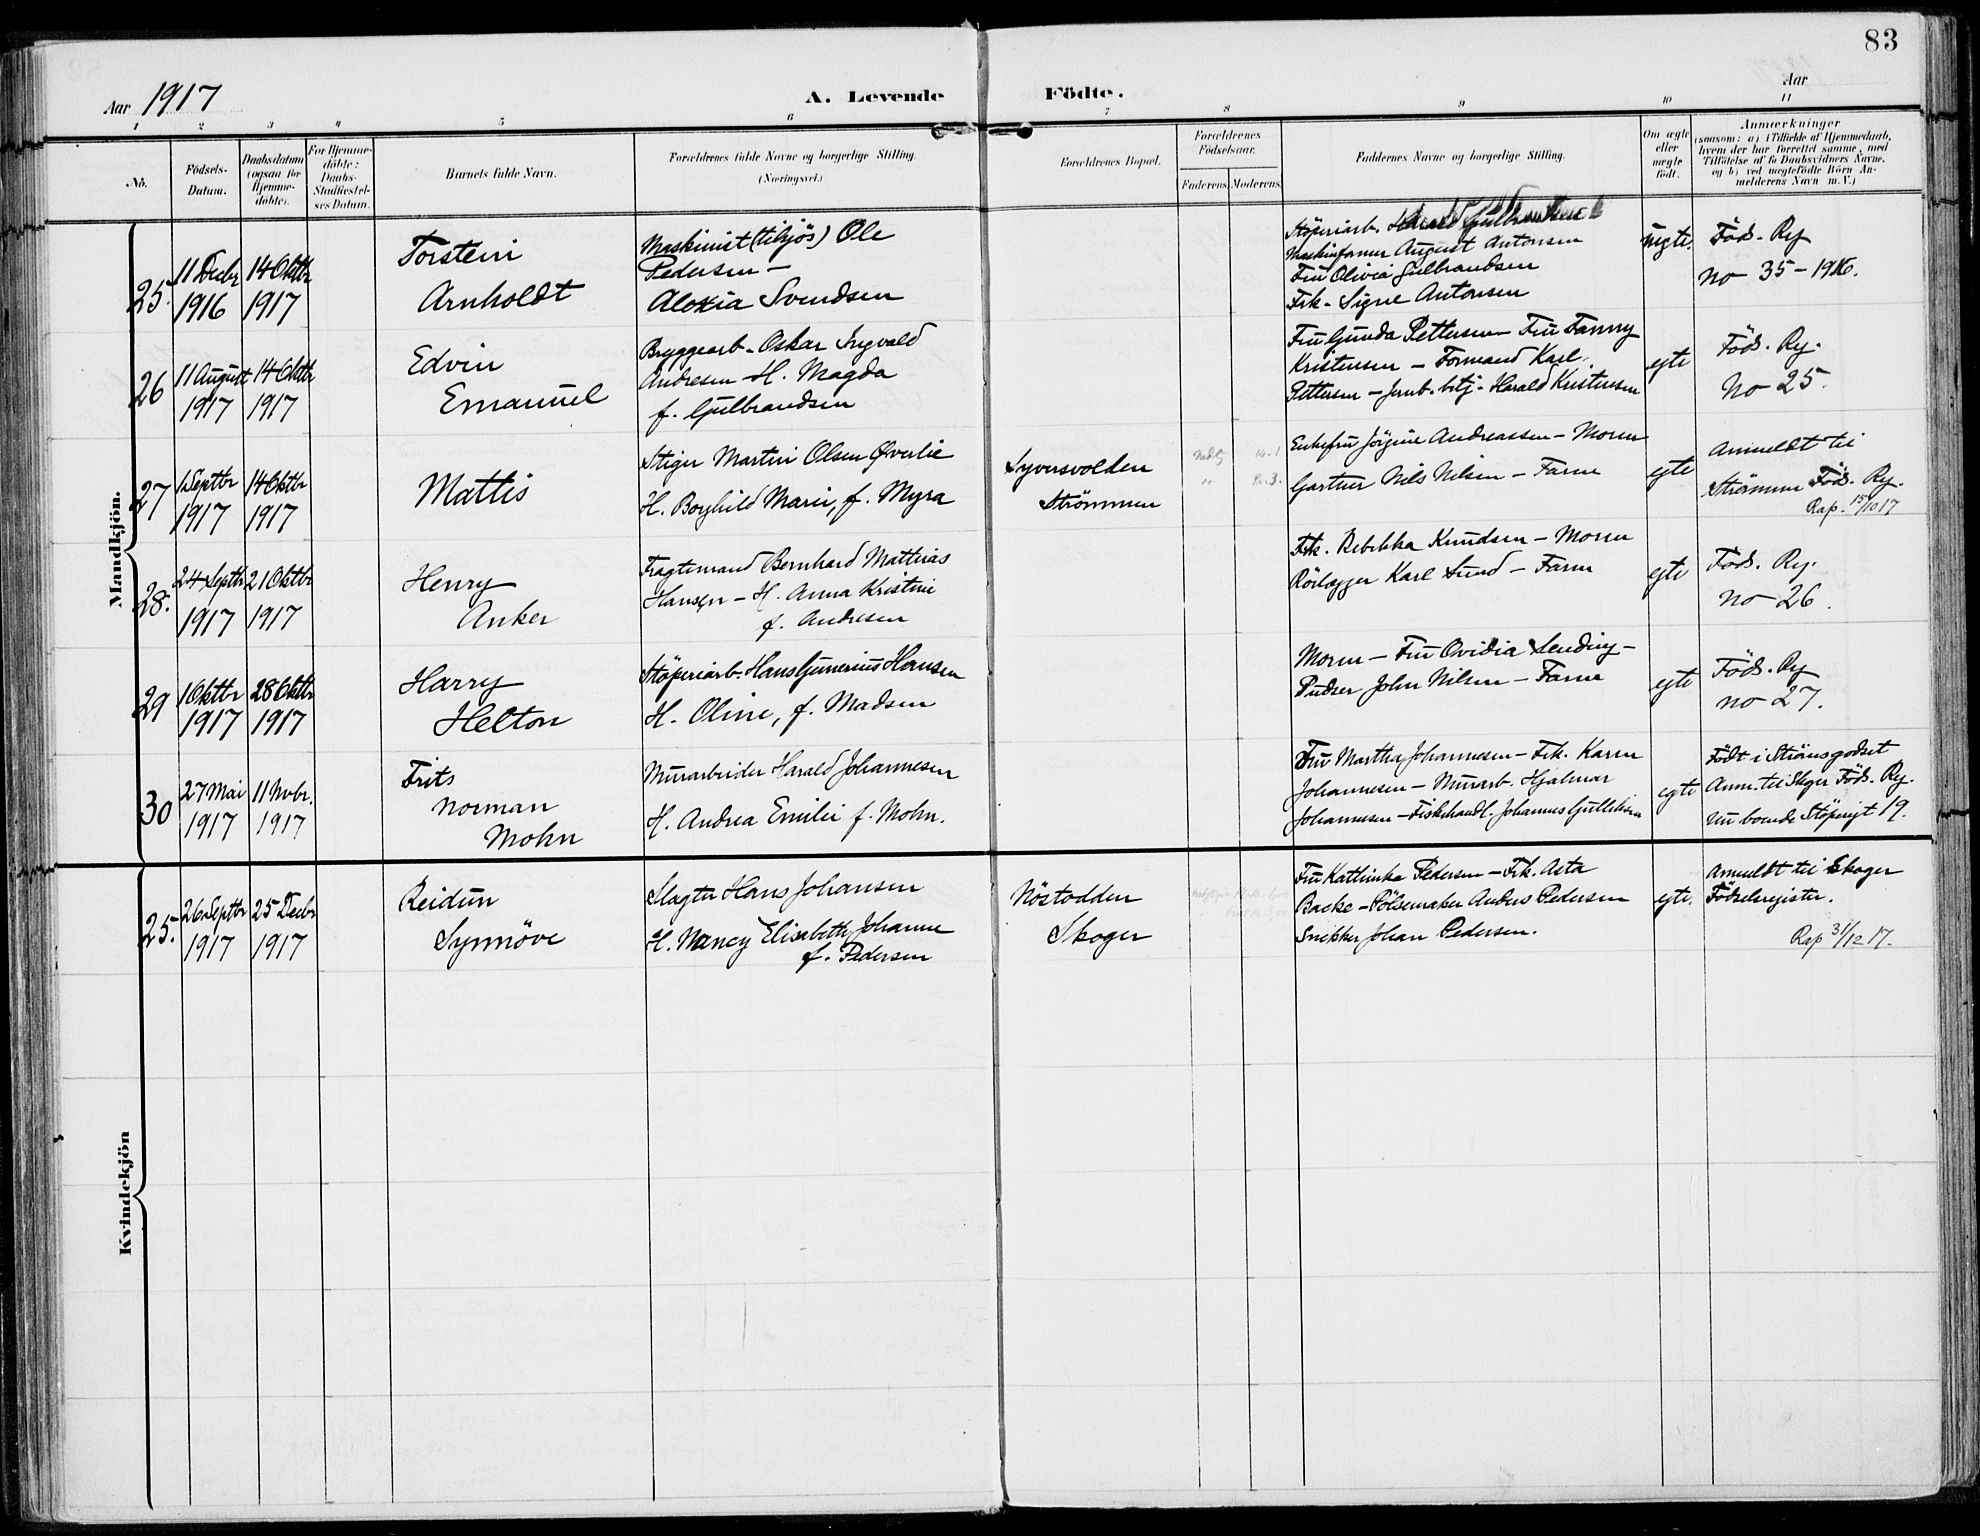 83
Aar 1917
A. Levende Födte.
Aar
1 2 3 4 5 6 7 8 9 10 11
No.
Födsels-
Datum.
Daabsdatum
(ogsaa for
Hjemme-
döbte).
For Hjemme-
döbte:
Daabs-
Stadfæstel-
ses Datum.
Barnets fulde Navn.
Forældrenes fulde Navne og borgerlige Stilling.
(Næringsvei.)
Forældrenes Bopæl.
Forældrenes
Födselsaar.
Faderens. Moderens.
Faddernes Navne og borgerlige Stilling.
Om ægte
eller
uægte
födt.
Anmærkninger
(saasom: a) i Tilfælde af Hjemmedaab,
hvem der har forrettet samme, med
Tilföielse af to Daabsvidners Navne,
og b) ved uægtefödte Börn An-
melderens Navn m. V.)
Mandkjön.
25.
11 Decbr
1916
14 Oktbr
1917
Torstein
Arnholdt
Maskinist (tilsjös) Ole
Pedersen –
Alexia Svendsen
Støperiarb. Harald Gulbrandsen
Maskinformer August Antonsen
Fru Olivia Gulbrandsen
Frk. Signe Antonsen
uegte.
Föds. Rg
No 35 – 1916.
26
11 August
1917
14 Oktbr
1917
Edvin
Emanuel
Bryggearb. Oskar Ingvald
Andresen – H. Magda
f. Gulbrandsen
Fru Gunda Pettersen – Fru Fanny
Kristensen – Formand Karl
Pettersen – Jernb. betj. Harald Kristensen
egte
Föds. Rg.
No 25.
27
1 Septbr
1917
14 Oktbr
1917
Mattis
Stiger Martin Olsen Øverlie
H. Borghild Marie, f. Myra
Syversvolden
Strömmen
Enkefru Jörgine Andreassen – Moren
Gartner Nils Nilsen – Faren
egte
Anmeldt til
Strömmen Föds. Rg.
Rap. 15/10 17
28.
24 Septbr
1917
21 Oktbr
1917
Henry
Anker
Fragtemand Bernhard Matthias
Hansen – H. Anna Kristine
f. Andresen
Frk. Rebekka Knudsen – Moren
Rörlægger Karl Lund – Faren
egte
Föds. Rg.
No 26.
29
1 Oktbr
1917
28 Oktbr
1917
Harry
Helton
Støperiarb. Hans Gunerius Hansen
H. Oline, f. Madsen
Moren – Fru Ovidia Sending –
Pudser John Nilsen – Faren
egte
Föds. Rg
no 27.
30
27 Mai
1917
11 Nvbr.
1917
Frits
Norman
Mohn
Murarbeider Harald Johannesen
H. Andrea Emilie f. Mohn.
Fru Martha Johannesen – Frk. Karen
Johannesen – Murarb. Hjalmar
Johannesen – Fiskehandl. Johannes Gulliksen
egte
Født i Strömsgodset
Anm. til Skoger Föds. Rg.
nu boende Støperigt 19.
Kvindekjön
25.
26 Septbr
1917
25 Decbr
1917
Reidun
Synnöve
Slagter Hans Johansen
H. Nancy Elisabeth Johanne
f. Pedersen
Nöstodden
Skoger
Fru Kathinka Pedersen – Frk. Asta
Backe – Pölsemaker Anders Pedersen
Snekker Johan Pedersen.
egte.
Anmeldt til Skoger
Födselsregister.
Rap 31/12 17.